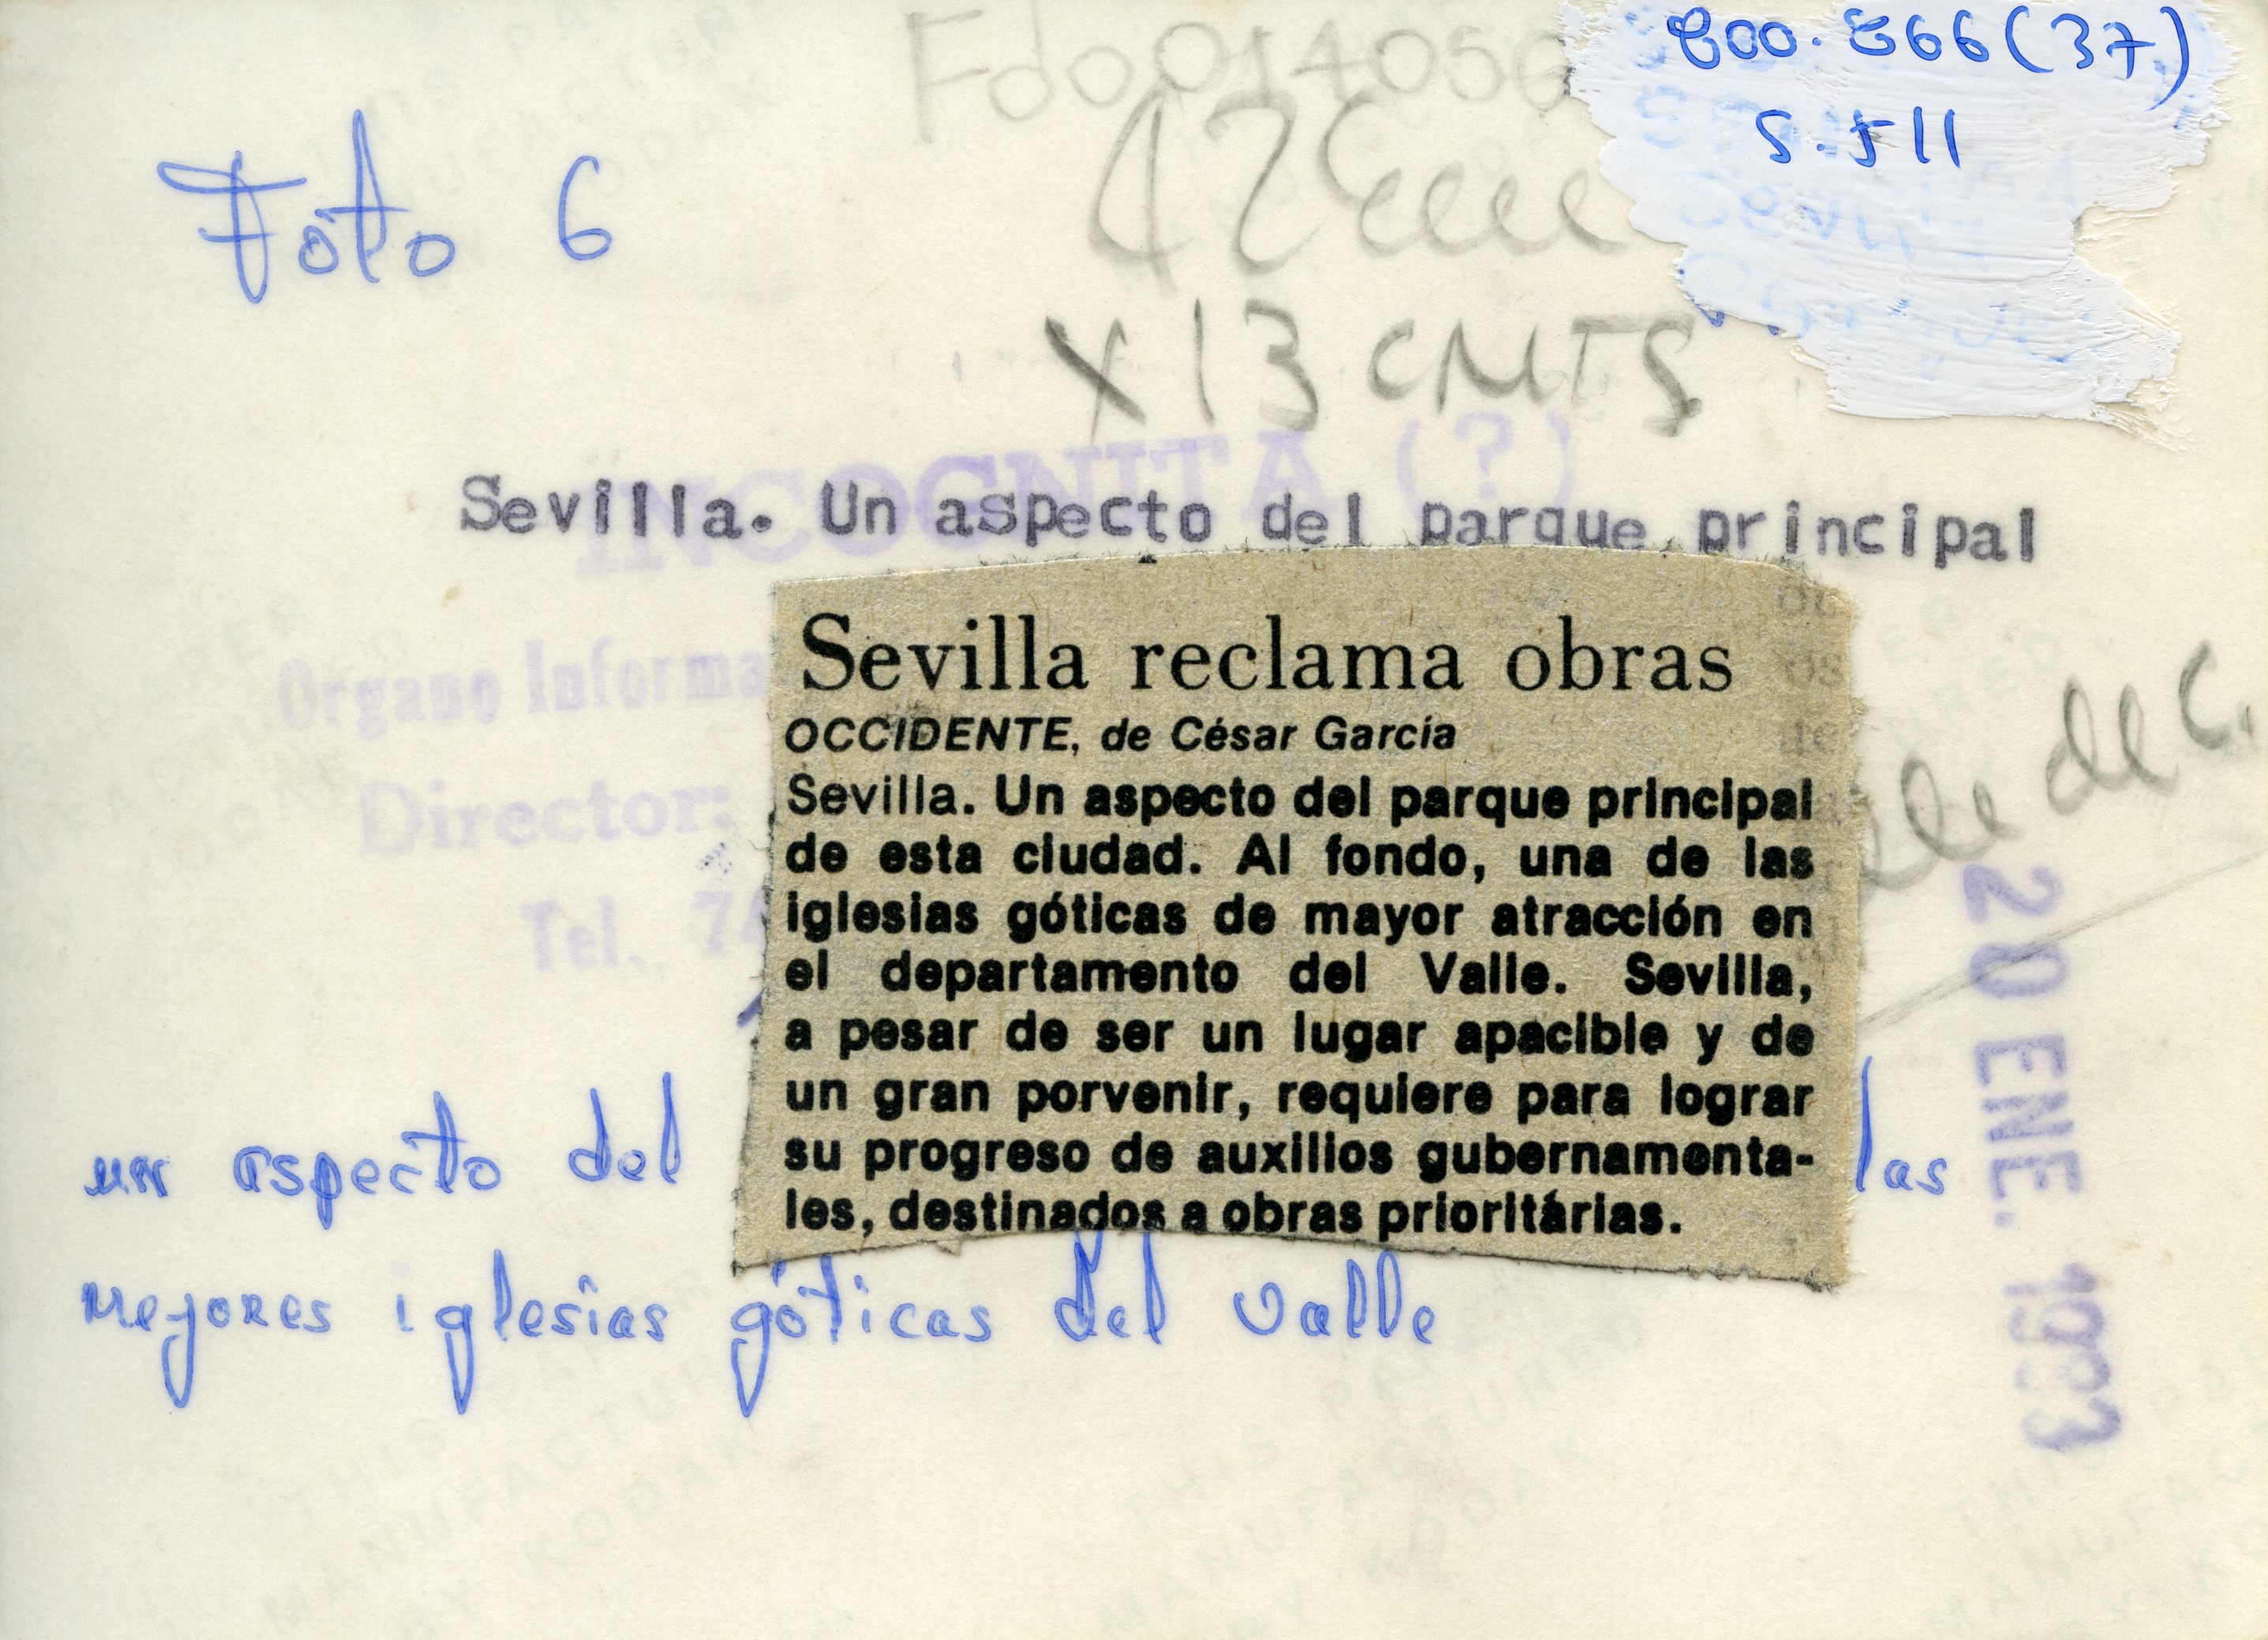 Fd0014056
800.866(37)
S.511
Foto 6
42
X 13 CMTS
INCOGNITA (?)
Sevilla. Un aspecto del parque principal
Organo Informa
Director:
Tel. 7
Sevilla reclama obras
OCCIDENTE, de César García
Sevilla. Un aspecto del parque principal
de esta ciudad. Al fondo, una de las
iglesias góticas de mayor atracción en
el departamento del Valle. Sevilla,
a pesar de ser un lugar apacible y de
un gran porvenir, requiere para lograr
su progreso de auxilios gubernamenta-
les, destinados a obras prioritárias.
de C.
20 ENE. 1983
un aspecto del las
mejores iglesias góticas del valle
THIS PA
MANUFACTUR
BY KODAK